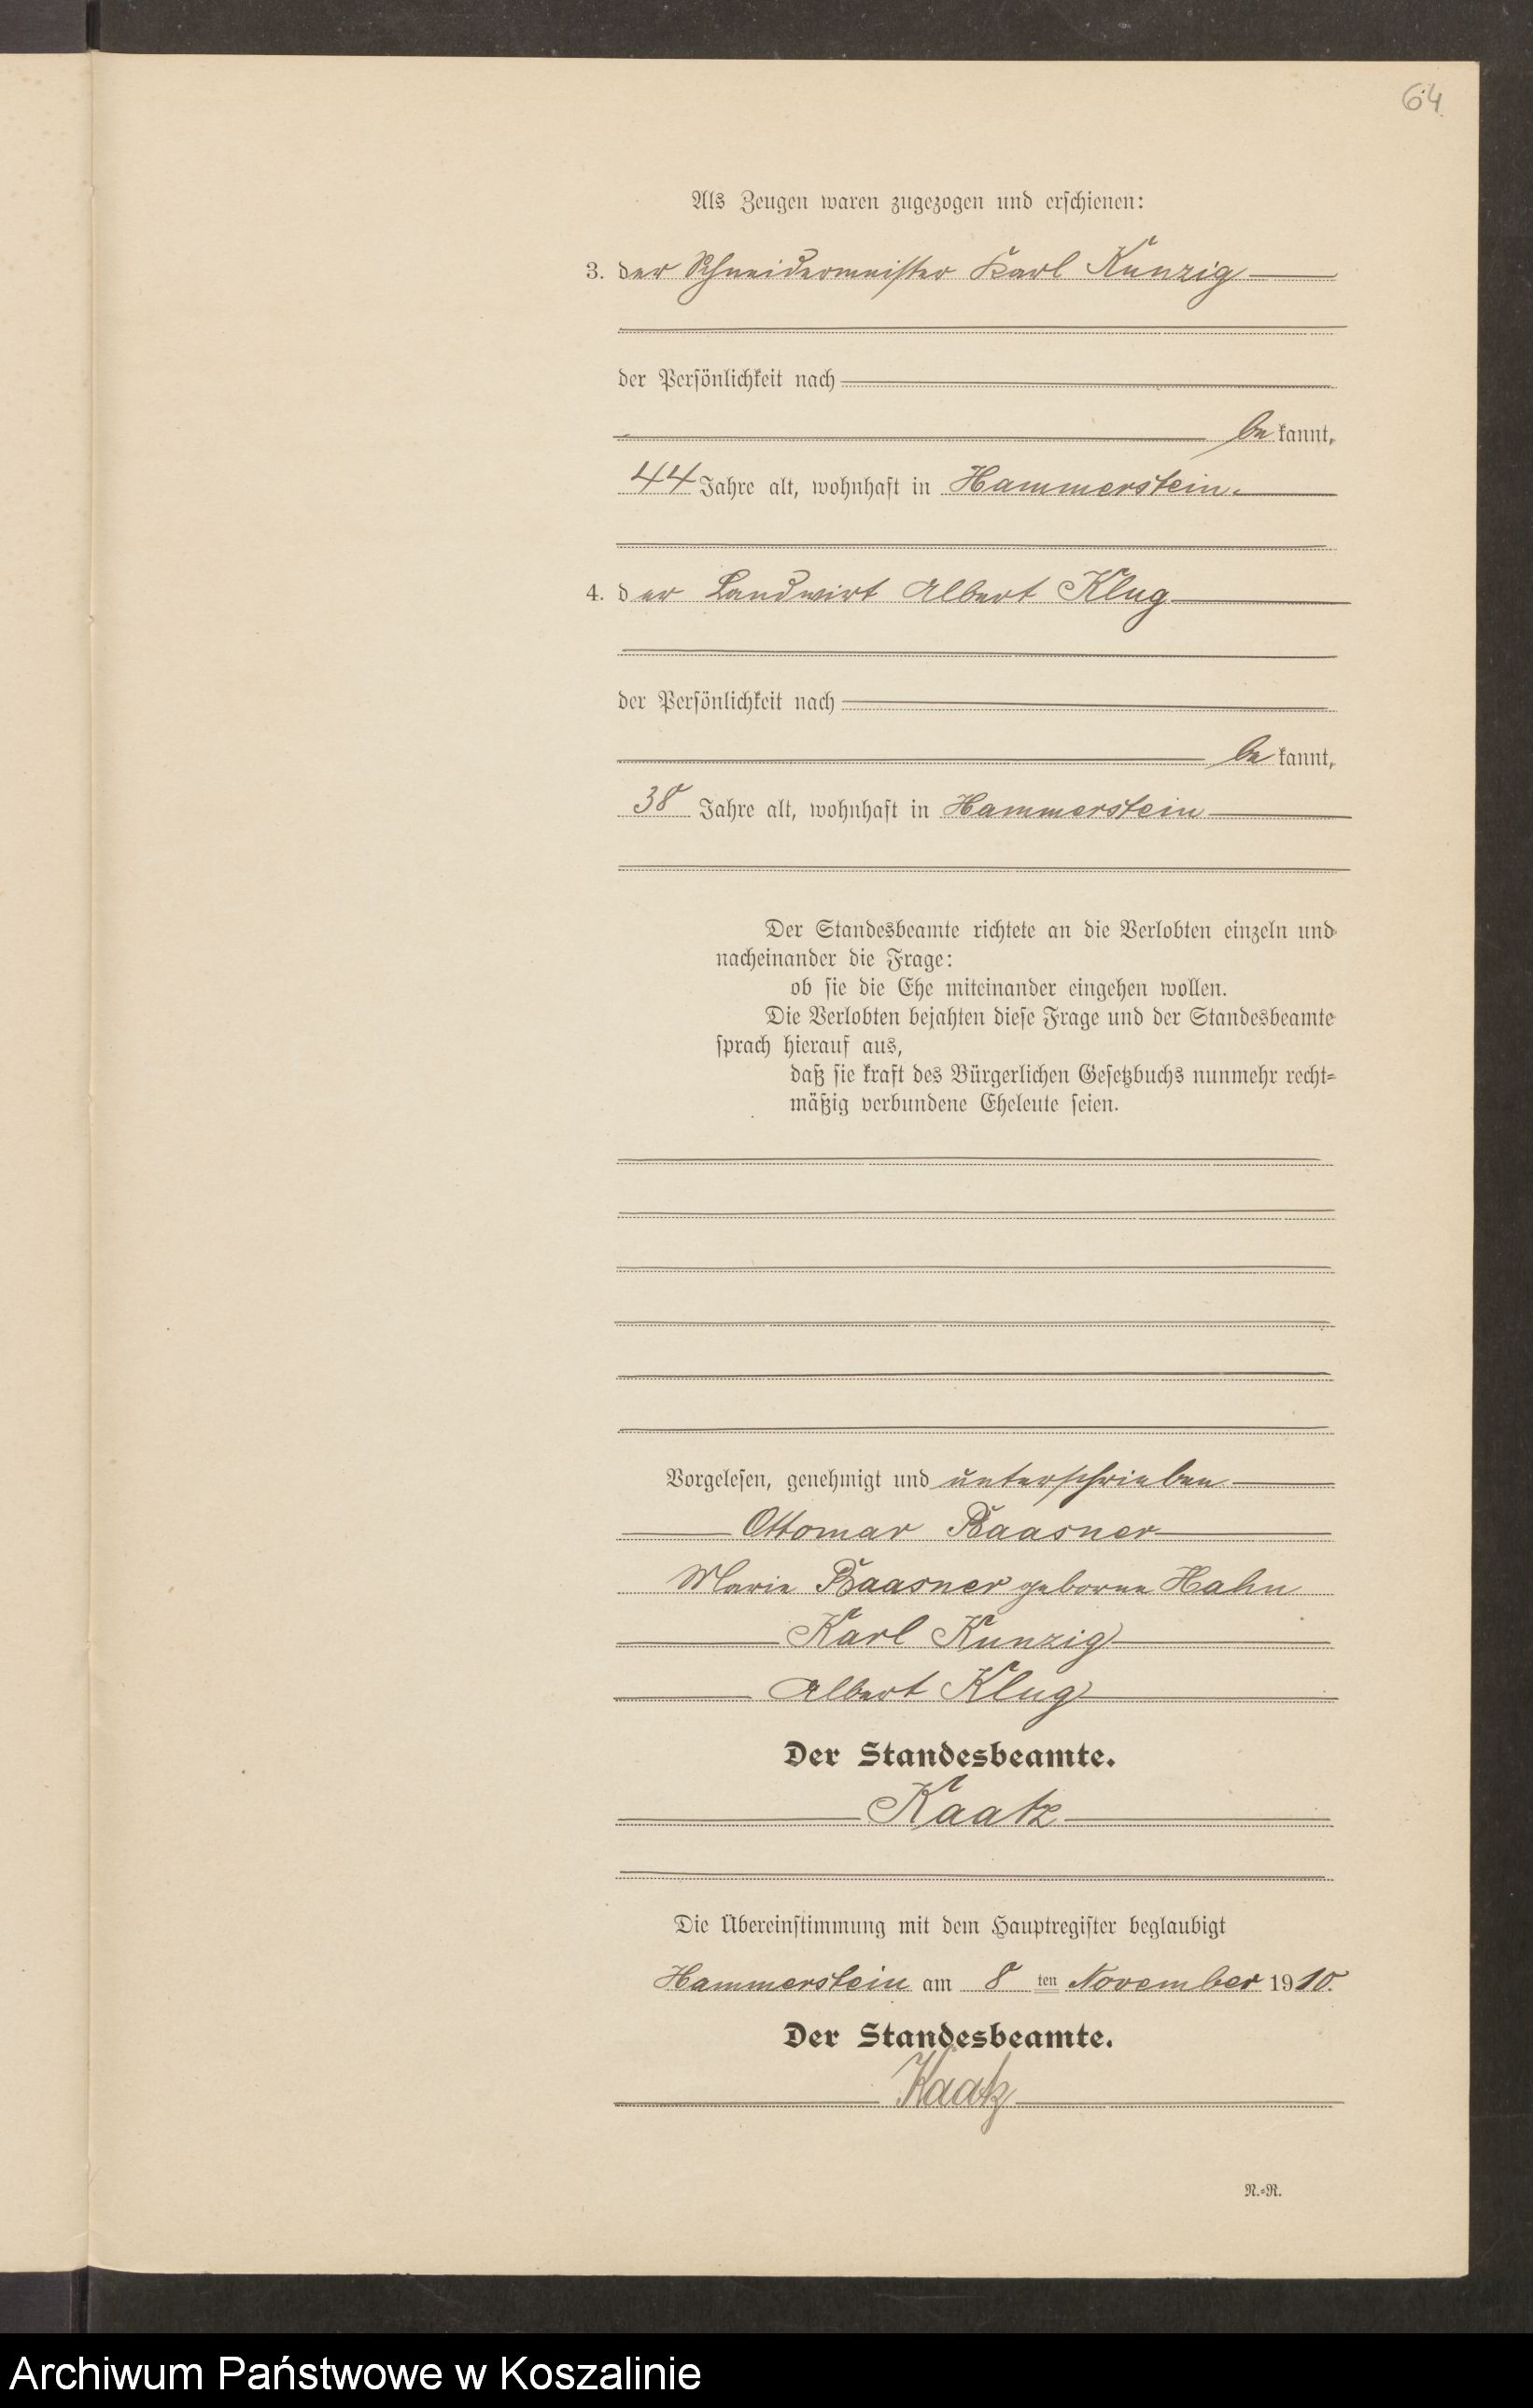 64
Als Zeugen waren zugezogen und erschienen:
3. der Schneidermeister Karl Kunzig
der Persönlichkeit nach
be kannt,
44 Jahre alt, wohnhaft in Hammerstein.
4. der Landwirt Albert Klug
der Persönlichkeit nach
be kannt,
38 Jahre alt, wohnhaft in Hammerstein
Der Standesbeamte richtete an die Verlobten einzeln und
nacheinander die Frage:
ob sie die Ehe miteinander eingehen wollen.
Die Verlobten bejahten diese Frage und der Standesbeamte
sprach hierauf aus,
daß sie kraft des Bürgerlichen Gesetzbuchs nunmehr recht-
mäßig verbundene Eheleute seien.
Vorgelesen, genehmigt und unterschrieben
Ottomar Baasner
Marie Baasner geborene Hahn
Karl Kunzig
Albert Klug
Der Standesbeamte.
Kaatz
Die Übereinstimmung mit dem Hauptregister beglaubigt
Hammerstein am 8 ten November 1910.
Der Standesbeamte.
Kaatz
N.-R.
Archiwum Państwowe w Koszalinie